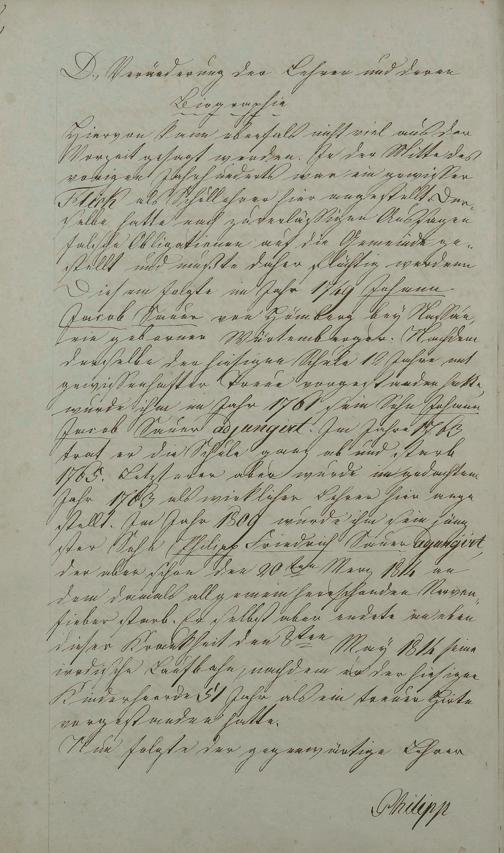 D., Veränderung der Lehrer und deren
Biographie
Hiervon kann ebenfals nicht viel aus der
Vorzeit gesagt werden. In der Mitte des
vorigen Jahrhunderts war ein gewisser
Flick als Schullehrer hier angestellt. Der-
selbe hatte nach zuverlässigen Aussagen
falsche Obligationen auf die Gemeinde ge-
stellt und mußte daher flüchtig werdenn
Diesem folgte im Jahr 1749 Johann
Jacob Sauer von Hömberg bey Nassau,
ein geborner Würtemberger. Nachdem
derselbe der hiesigen Schule 12 Jahre mit
gewissenhafter Treue vorgestanden hatte
wurde ihm im Jahr 1761 sein Sohn Johann
Jacob Sauer adjungirt. Im Jahre 1763
trat er die Schule ganz ab und starb
1765. Letzterer aber wurde im gedachten
Jahr 1763 als wirklicher Lehrer hier ange
stellt. Im Jahr 1809 wurde ihm sein jüng
ster Sohn Philipp Friedrich Sauer adjungirt,
der aber schon den 20ten Merz 1814 an
dem damals allgemein herrschenden Nerven-
fieber starb. Er selbst aber endete an eben
dieser Krankheit den 8ten May 1814 seine
irrdische Laufbahn, nachdem er der hiesigen
Kinderheerde 51 Jahr als ein treuer Hirte
vorgestanden hatte.
Nun folgte der gegenwärtige Lehrer
Philipp